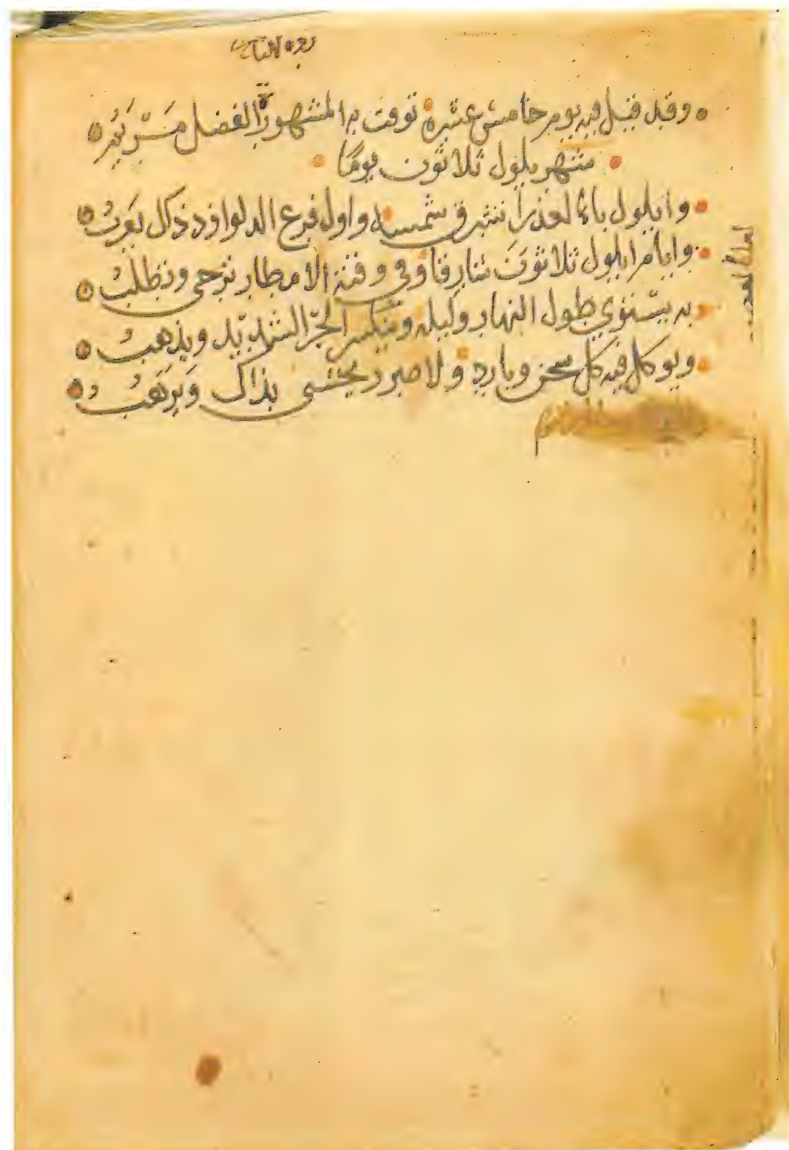 وقد قيل فيه يوم خامس عشره توفت به المشهورة الفضل مَرْيَمُ
شهر يلول ثلاثون يومًا
وايلول بالعذرا تشرق شمسه واول فرع الدلو اذ ذاك يغربُ
وايام ايلول ثلاثون وفي وقته الامطار ترجى وتطلبُ
به يستوي طول النهار وليله وينكسر الحرّ الشديد ويذهبُ
ويوكل فيه كل سخن وبارد ولا ضرر يخشى بذاك ويرهبُ